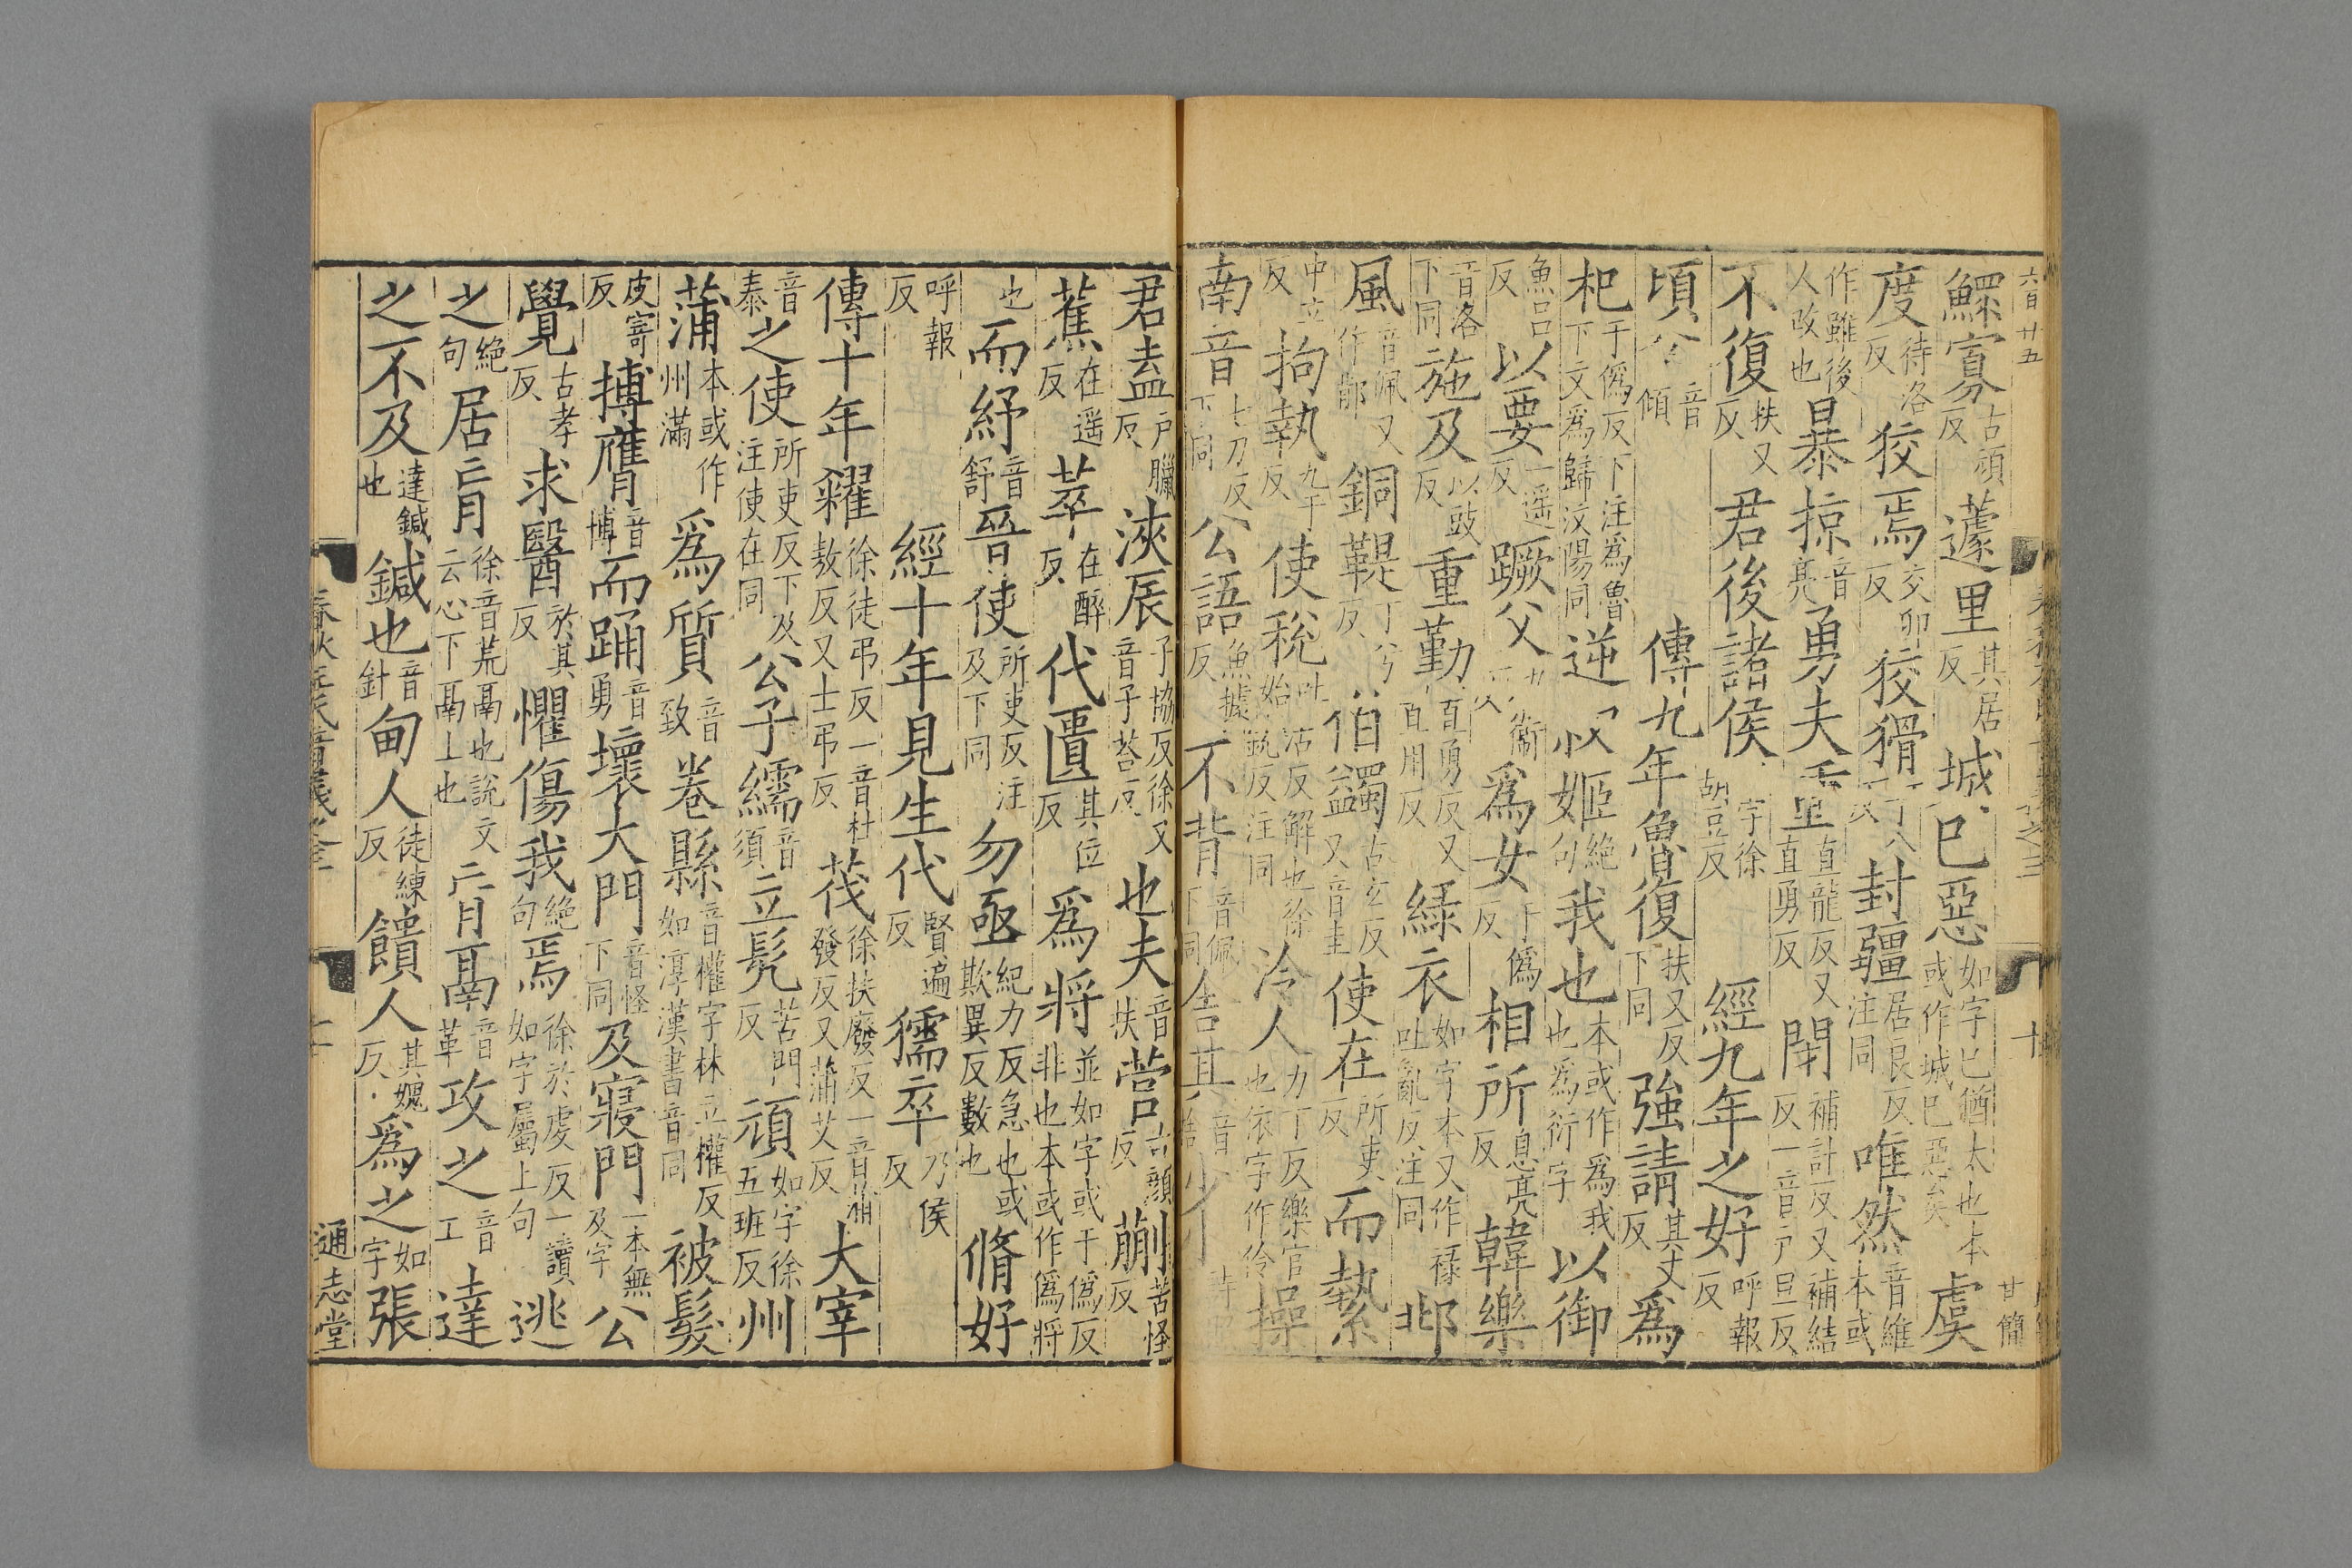 六百廿五
鰥寡古頑反蘧里其居反城已惡如字已猶太也本或作城已惡矣虞
度待洛反狡焉交卯反狡猾封疆居良反注同唯然音維本或
作雖後人改也暴掠音亮勇夫重直龍反又直勇反閉補計反又補結反一音戶旦反
不復扶又反君後諸侯字徐胡豆反經九年之好呼報反
頃公音傾傳九年魯復扶又反下同強請其丈反爲
杞于僞反下注爲魯下文爲歸汶陽同逆叔姬絕句我也本或作爲我也爲衍字以御
魚呂反以要一遥反蹶父九衞反爲女于僞反相所息亮反韓樂
音洛下同施及以豉反重勤直勇反又直用反綠衣如字本又作褖吐亂反注同邶
風音佩又作鄁銅鞮丁兮反伯蠲古玄反又音圭使在所吏反而縶
中立反拘執九于反使稅吐活反解也徐始銳反注同泠人力丁反樂官也依字作伶操
南音七刀反下同公語魚據反不背音佩下同舍其音捨少
君盍戶臘反浹辰子協反徐又音子荅反也夫音扶菅古顏反蒯苦怪反
蕉在遥反萃在醉反代匱其位反爲將並如字或于僞反非也本或作僞將
也而紓音舒晉使所吏反注及下同勿亟紀力反急也或欺異反數也脩好
呼報反經十年見生代賢遍反獳卒乃侯反
傳十年糴徐徒弔反一音杜敖反又士弔反茷徐扶廢反一音發反又蒲艾反大宰
音泰之使所吏反下及注使在同公子繻音須立髡苦門反頑如字徐五班反州
蒲本或作州滿爲質音致卷縣音權字林丘權反如淳漢書音同被髮
皮寄反搏膺音博而踊音勇壞大門音怪下同及寢門一本無及字公
覺古孝反求醫於其反懼傷我絕句焉徐於虔反一讀如字屬上句逃
之絕句居肓徐音荒鬲也說文云心下鬲上也肓鬲音革攻之音工達
之不及達鍼也鍼也音針甸人徒練反饋人其媿反爲之如字張
通志堂